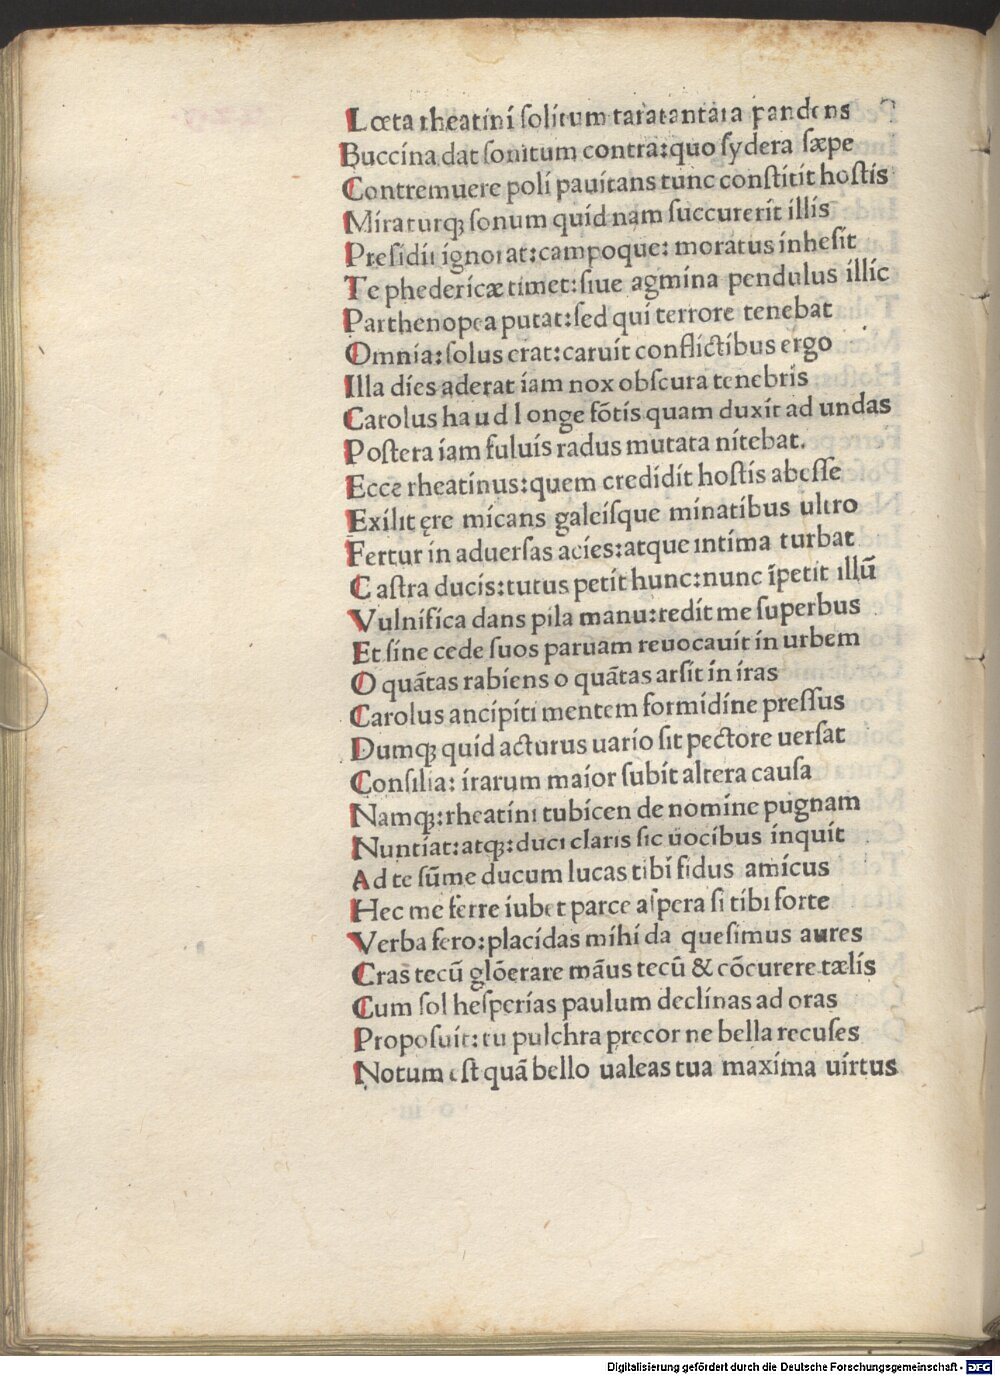 Lœta rheatini solitum taratantara pandens
Buccina dat sonitum contra:quo sydera sæpe
Contremuere poli pauitans tunc constitit hostis
Miraturqꝫ sonum quid nam succurerit illis
Presidii ignorat:campoque: moratus inhesit
Te phedericæ timet:siue agmina pendulus illic
Parthenopea putat:sed qui terrore tenebat
Omnia:solus erat:caruit conflictibus ergo
Illa dies aderat iam nox obscura tenebris
Carolus haud longe fōtis quam duxit ad undas
Postera iam fuluis radus mutata nitebat.
Ecce rheatinus:quem credidit hostis abesse
Exilit ęre micans galeisque minatibus ultro
Fertur in aduersas acies:atque intima turbat
Castra ducis:tutus petit hunc:nunc īpetit illū
Vulnifica dans pila manu:redit me superbus
Et sine cede suos paruam reuocauit in urbem
O quātas rabiens o quātas arsit in iras
Carolus ancipiti mentem formidine pressus
Dumqꝫ quid acturus uario sit pectore uersat
Consilia: irarum maior subit altera causa
Namqꝫ:rheatini tubicen de nomine pugnam
Nuntiat:atqꝫ:duci claris sic uocibus inquit
Ad te sūme ducum lucas tibi fidus amicus
Hec me ferre iubet parce aspera si tibi forte
Verba fero:placidas mihi da quesimus aures
Cras tecū glōerare māus tecū & cōcurere tælis
Cum sol hesperias paulum declinas ad oras
Proposuit:tu pulchra precor ne bella recuses
Notum est quā bello ualeas tua maxima uirtus
Digitalisierung gefördert durch die Deutsche Forschungsgemeinschaft - DFG